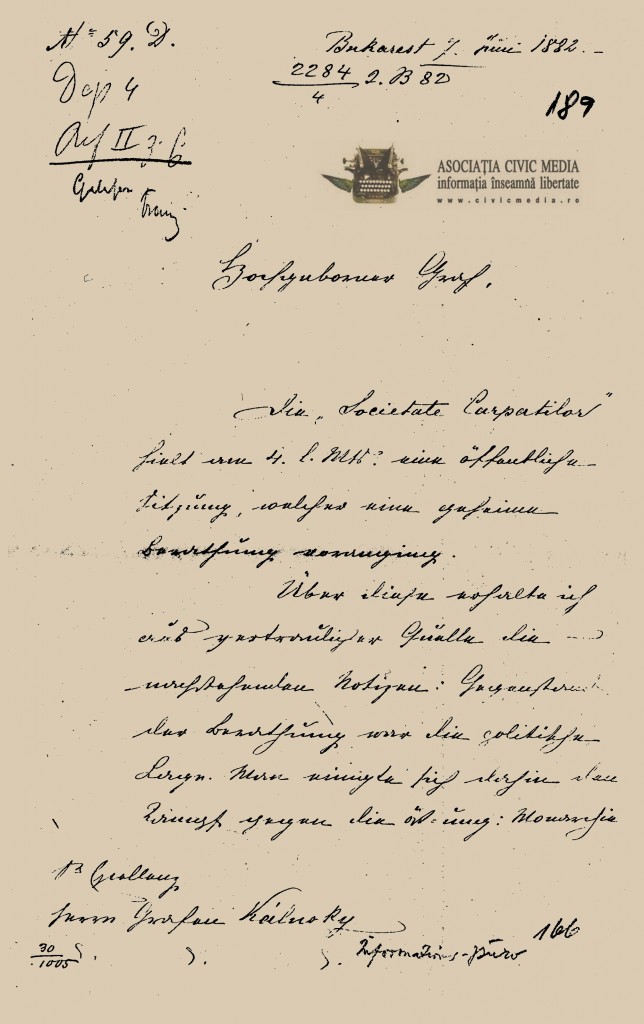 Nº 59. D.
Bukarest 7. Juni 1882.
2284
4
2. B 82
Dep 4
189
Ref II
ASOCIAȚIA CIVIC MEDIA
informația înseamnă libertate
www.civicmedia.ro
Hochgeborner Graf,
Die „Societate Carpatilor"
hielt am 4. l. Mts: eine öffentliche
Sitzung, welcher eine geheime
Berathung voranging.
Über diese erhalte ich
aus vertraulicher Quelle die
nachstehenden Notizen: Gegenstand
der Berathung war die politische
Lage. Man einigte sich dahin den
Kampf gegen die öst:-ung: Monarchie
Sr Excellenz
Herrn Grafen Kálnoky
166
30
1005
Informations-Büro